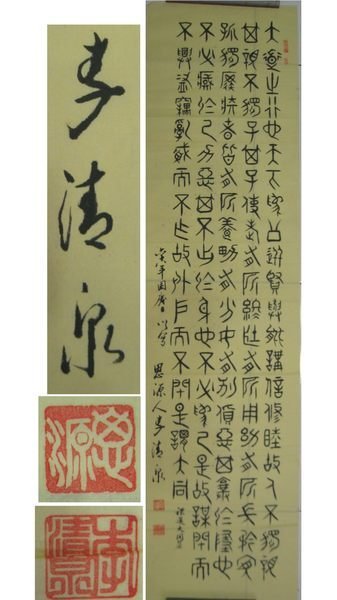 李清泉
思源
李清泉
大道之行也天下為公選賢與能講信修睦故人不獨親
其親不獨子其子使老有所終壯有所用幼有所長矜寡
孤獨廢疾者皆有所養男有分女有歸貨惡其棄於地也
不必藏於己力惡其不出於身也不必為己是故謀閉而
不興盜竊亂賊而不作故外戶而不閉是謂大同
禮運大同
年國慶日 思源人李清泉